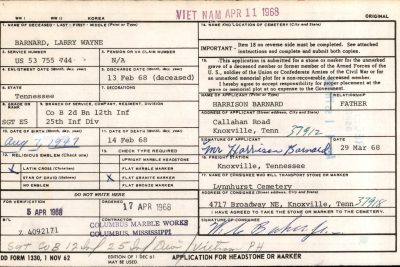 WW I
WW II
KOREA
VIET NAM
APR 11 1968
ORIGINAL
1. NAME OF DECEASED - LAST - FIRST - MIDDLE (Print or Type)
BARNARD, LARRY WAYNE
14. NAME AND LOCATION OF CEMETERY (City and State)
2. SERVICE NUMBER
US 53 755 744
3. PENSION OR VA CLAIM NUMBER
N/A
IMPORTANT - Item 18 on reverse side must be completed. See attached
instructions and complete and submit both copies.
4. ENLISTMENT DATE (Month, day, year)
5. DISCHARGE DATE (Month, day, year)
13 Feb 68 (deceased)
15. This application is submitted for a stone or marker for the unmarked
grave of a deceased member or former member of the Armed Forces of the
U.S., soldier of the Union or Confederate Armies of the Civil War or for
an unmarked memorial plot for a non-recoverable deceased member.
I hereby agree to accept responsibility for proper placement at the
grave or memorial plot at no expense to the Government.
6. STATE
Tennessee
SGT E5
9. BRANCH OF SERVICE, COMPANY, REGIMENT, DIVISION
Co B 2d Bn 12th Inf
25th Inf Div
NAME OF APPLICANT (Print or Type)
HARRISON BARNARD
RELATIONSHIP
FATHER
Callahan Road
Knoxville, Tenn 37912
10. DATE OF BIRTH (Month, day, year)
Aug 7, 1947
11. DATE OF DEATH (Month, day, year)
14 Feb 68
SIGNATURE OF APPLICANT
Mr Harrison Barnard
DATE
29 Mar 68
12. RELIGIOUS EMBLEM (Check one)
LATIN CROSS (Christian)
STAR OF DAVID (Hebrew)
NO EMBLEM
13. CHECK TYPE REQUIRED
UPRIGHT MARBLE HEADSTONE
FLAT MARBLE MARKER
X FLAT GRANITE MARKER
FLAT BRONZE MARKER
16. FREIGHT STATION
Knoxville, Tennessee
17. NAME OF CONSIGNEE WHO WILL TRANSPORT STONE OR MARKER
Lynnhurst Cemetery
DO NOT WRITE HERE
5 APR 1968
ORDERED
17 APR 1968
4717 Broadway NE, Knoxville, Tenn 37918
I HAVE AGREED TO TAKE THE STONE OR MARKER TO THE CEMETERY.
B/L
Z 4092171
CONTRACTOR
COLUMBUS MARBLE WORKS
COLUMBUS, MISSISSIPPI
SIGNATURE OF CONSIGNEE
Sgt Co B 12 Inf 25 Inf Div Vietnam PH
DD FORM 1330, 1 NOV 62
EDITION OF 1 DEC 61
MAY BE USED.
APPLICATION FOR HEADSTONE OR MARKER